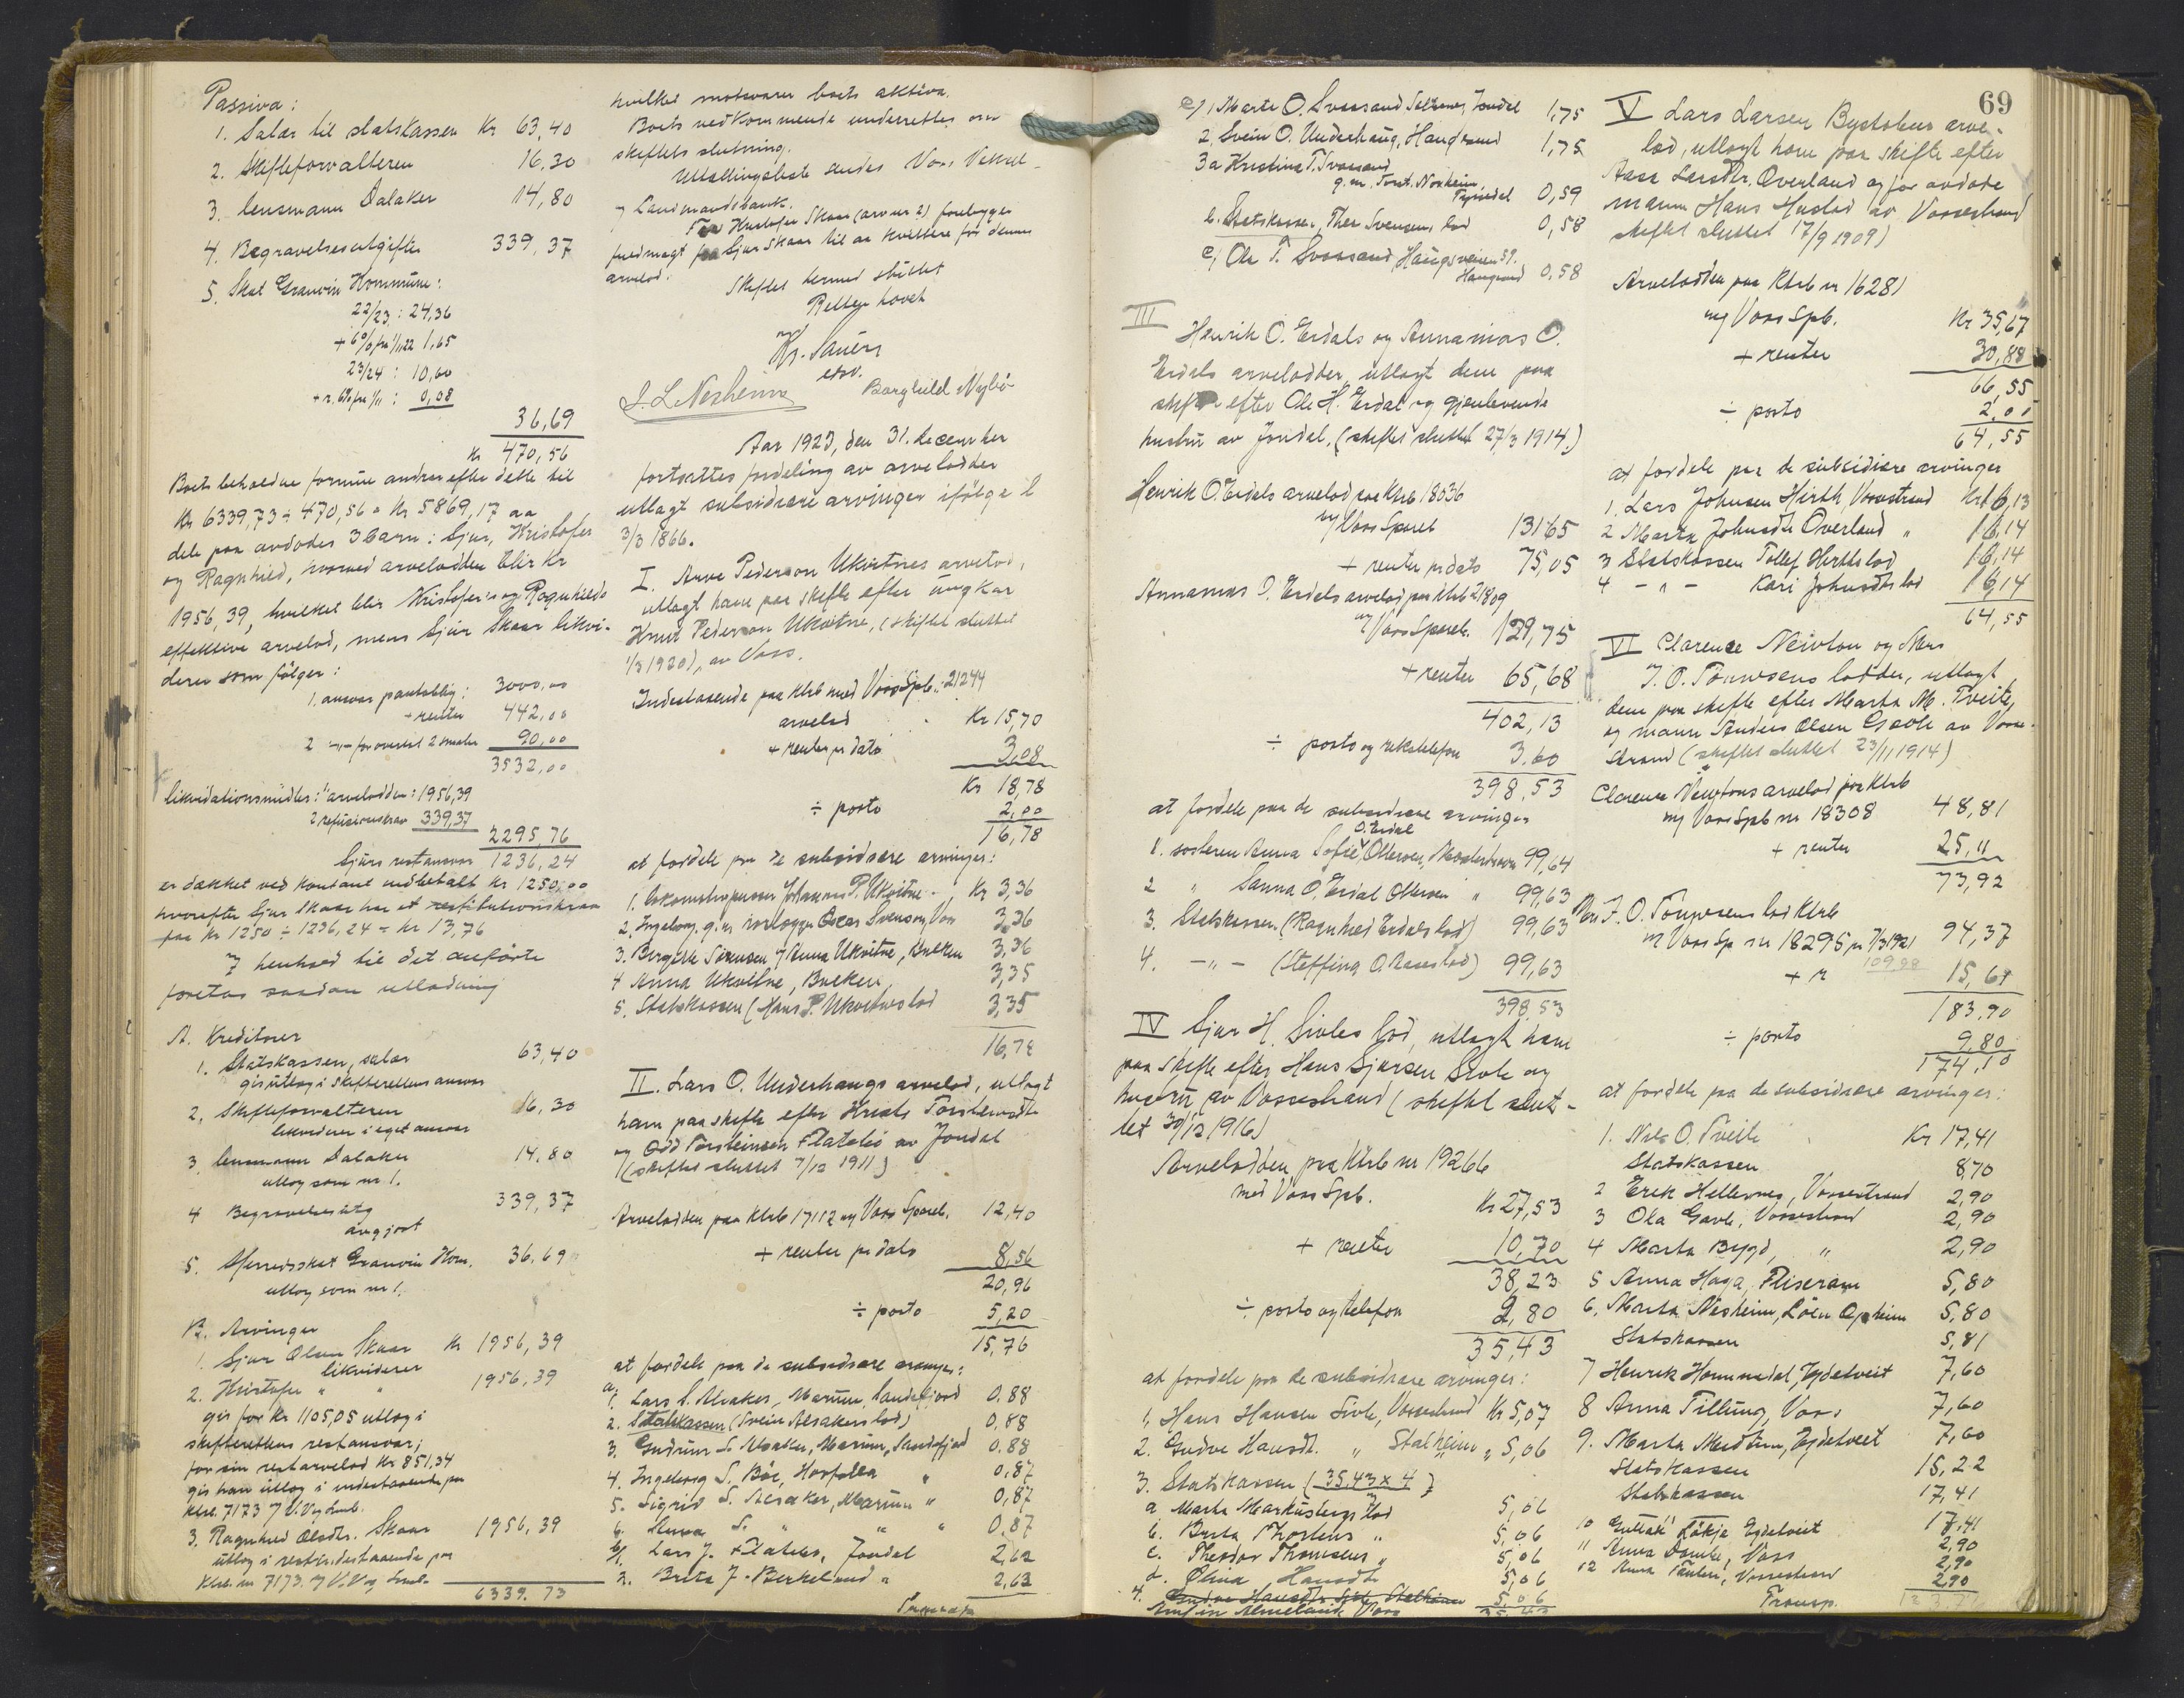 Passiva:
1. Salær til statskassen Kr 63,40
2. Skifteforvalteren 16,30
3. lensmann Dalaker 14,80
4. Begravelsesutgifter 339,37
5. Skat Granvin Kommune:
22/23: 24,36
+ 6% fra 1/11 22 1,65
23/24: 10,60
+ r. 6% fra 1/11: 0,08
36,69
Kr 470,56
Boets beholdne formue andrar efter dette til
Kr 6339,73 ÷ 470,56 = Kr 5869,17 aa
dele paa avdødes 3 barn: Sjur, Kristofer
og Ragnhild, hvorved arvelodden blir Kr
1956,39, hvilket blir Kristofer's og Ragnhilds
effektive arvelod, mens Sjur Skaar likvi-
derer som følger:
1. ansvar pantoblig: 3000,00
+ renter 442,00
2 -"- for overtat 2 smaler 90,00
3532,00
likvidationsmidler: 1 arvelodden: 1956,39
2 refusionskrav 339,37
2295,76
Sjurs restansvar 1236,24
er dækket ved kontant indbetalt Kr 1250,00
hvorefter Sjur Skaar har et restitutionskrav
paa Kr 1250 ÷ 1236,24 = Kr 13,76
I henhold til det anførte
foretas saadan utlodning
A. Kreditorer
1. Statskassen, salær 63,40
gis utlæg i skifterettens ansvar
2. Skifteforvalteren 16,30
likviderer i eget ansvar
3. lensmann Dalaker 14,80
utlæg som nr 1.
4 Begravelsesutg 339,37
avgjort
5. Herredsskat Granvin Kom. 36,69
utlæg som nr 1.
B. Arvinger
1. Sjur Olsen Skaar Kr 1956,39
likviderer
2. Kristofer " " 1956,39
gis for Kr 1105,05 utlæg i
skifterettens restansvar;
for sin restarvelod Kr 851,34
gis han utlæg i indestaaende paa
Kbk. 7173 i V.V og Lmb.
3. Ragnhild Olsdtr. Skaar 1956,39
utlæg i restindestaaende paa
Kbk. nr 7173 i V.V og Lmb.
6339.73
hvilket motsvarer boets aktiva.
Boets vedkommende underrettes om
skiftets slutning.
Uttællingsliste sendes Voss Veksel-
og Landmandsbank.
For Kristofer Skaar (arv nr 2) forelægges
fuldmagt fra Sjur Skaar til aa kvittere for dennes
arvelod.
Skiftet hermed sluttet
Retten hævet
Kr. Sauers
esv.
J. L. Nesheim Borghild Nybø
Aar 1923, den 31. december
fortsattes fordeling av arvelodder
utlagt subsidiære arvinger ifølge l
3/3 1866.
I. Arve Pederson Ukvitnes arvelod,
utlagt ham paa skifte efter ungkar
Knut Pederson Ukvitne, (skiftet sluttet
1/3 1920), av Voss.
Indestaaende paa Kbk med Voss Spb.: 21244
arvelod Kr 15,70
+ renter pr dato 3,08
Kr 18,78
÷ porto 2,00
16,78
at fordele paa de subsidiære arvinger:
1. lokomotivpusser Johannes P. Ukvitne Kr 3,36
2. Ingeborg g.m. rørlægger Oscar Svenson, Voss 3,36
3. Bergitte Sørensen f Anna Ukvitne, Bulken 3,36
4 Anna Ukvitne, Bulken 3,35
5. Statskassen (Hans P. Ukvitnes lod 3,35
16,78
II. Lars O. Underhaugs arvelod, utlagt
ham paa skifte efter Kristi Torsteinsdtr
og Odd Torsteinsen Flatebø av Jondal
(skiftet sluttet 7/12 1911)
Arvelodden paa Kbk 17112 og Voss Spareb. 12,40
+ renter pr dato 8,56
20,96
÷ porto 5,20
15,76
at fordele paa de subsidiære arvinger:
a.
1. Lars S. Alsaker, Marum, Sandefjord 0.88
2. Statskassen (Svein Alsakers lod) 0,88
3. Gudrun S. Alsaker, Marum, Sandefjord 0.88
4. Ingeborg S. Bøe, " 0,87
5. Sigrid S. Alsaker, Marum " 0,87
6. S. " " " 0.87
b/1. Lars J. Flatebø, Jondal 2,62
2. Brita J. Berkeland " 2,63
69
c/1 Marte O. Svaasand Selsenes, Jondal 1,75
2. Svein O. Underhaug, Haugesund 1,75
3 a Kristina T. Svaasand
g.m. Torst. Norheim
Fyrisdal 0,59
b. Statskassen, Thor Svensens lod 0,58
c/ Ole T. Svaasand, Haugsveien 59.
Haugesund 0,58
III
Henrik O. Erdals og Annamas O.
Erdals arvelodder, utlagt dem paa
skifte efter Ole H. Erdal og gjenlevende
hustru av Jondal, (skiftet sluttet 27/3 1914.)
Henrik O Erdals arvelod paa Kbk 18036
og Voss Spareb 131 65
+ renter pr dato 75,05
Annamas O. Erdals arvelod paa Kbk 21809
og Voss Spareb. 129,75
+ renter 65,68
402,13
÷ porto og rikstelefon 3.60
398,53
at fordele paa de subsidiære arvinger
O. Erdal
1. søsteren Anna Sofie Ottersen, 99,64
2 " Sanna O. Erdal Ottersen " 99,63
3. Statskassen (Ragnhild Erdals lod) 99,63
4. -"- (Steffina O. lod) 99,63
398.53
IV Sjur H. Sivles lod, utlagt ham
paa skifte efter Hans Sjursen Sivle og
hustru av Vossestrand (skiftet slut-
tet 30/12 1916)
Arvelodden paa Kbk nr 19266
med Voss Spb. Kr 27,53
+ renter 10,70
38,23
÷ porto og telefon 2,80
35,43
at fordele paa de subsidiære arvinger:
1. Hans Hansen Sivle, Vossestrand Kr 5,07
2. Gudve Hansdt. " Stalheim " 5,06
3. Statskassen (35,43 x 4 / 7)
a Marta Markusteigs lod 5,06
b. Brita Thorsens " 5,06
c. Theodor Thomsens " 5,06
d. Olina Hansdtr 5,06
4. Gudve Hansdtr Sivle Stalheim 5.06
Almeland, Voss 35,43
V Lars Larsen Bystølens arve-
lod, utlagt ham paa skifte efter
Aasa Larsdtr. Overland og før avdøde
mann Hans Hustad av Vossestrand
skiftet sluttet 17/9 1909)
Arvelodden paa Kbk nr 16281
og Voss Spb. Kr 35,67
+ renter 30,88
66,55
÷ porto 2,00
64,55
at fordele paa de subsidiære arvinger
1. Lars Johnsen Hirth, Vossestrand Kr 16,13
2 Marta Johnsdtr Overland " 16,14
3 Statskassen Tollef Hirths lod 16,14
4 -"- Kari Johnsdtrs lod 16,14
64,55
VI Clarence Newton og Mrs
J. O. Tounsens lodder, utlagt
dem paa skifte efter Marta M. Tveite,
og mann Anders Olsen Gavle av Vosse-
strand (skiftet sluttet 23/11 1914)
Clarence Newtons arvelod paa Kbk
og Voss Spb nr 18308 48,81
+ renter 25,11
73,92
Mrs J. O. Tounsens lod Kbk
og Voss Sp nr 18295 pr 7/3 1921 94,37
109,98
+ r 15,61
183,90
÷ porto 9,80
174,10
at fordele paa de subsidiære arvinger:
1. Nils O. Tveite Kr 17,41
Statskassen 8,70
2 Erik Hellesnes, Vossestrand 2,90
3 Ola Gavle, Vossestrand 2,90
4 Marta Bygd, " 2,90
5 Anna Haga, Fliseram 5,80
6. Marta Nesheim, Løen Opheim 5,80
Statskassen 5,81
7 Henrik Hommedal, Eydetveit 7,60
8 Anna Tillung, Voss 7,60
9. Marta Midtun, Eydetveit 7,60
Statskassen 15,22
Statskassen 17,41
10 Løkja Eydetveit 17,41
11 Anna , Voss 2,90
2,90
12 Anna , Vossestrand 2,90
Transp.